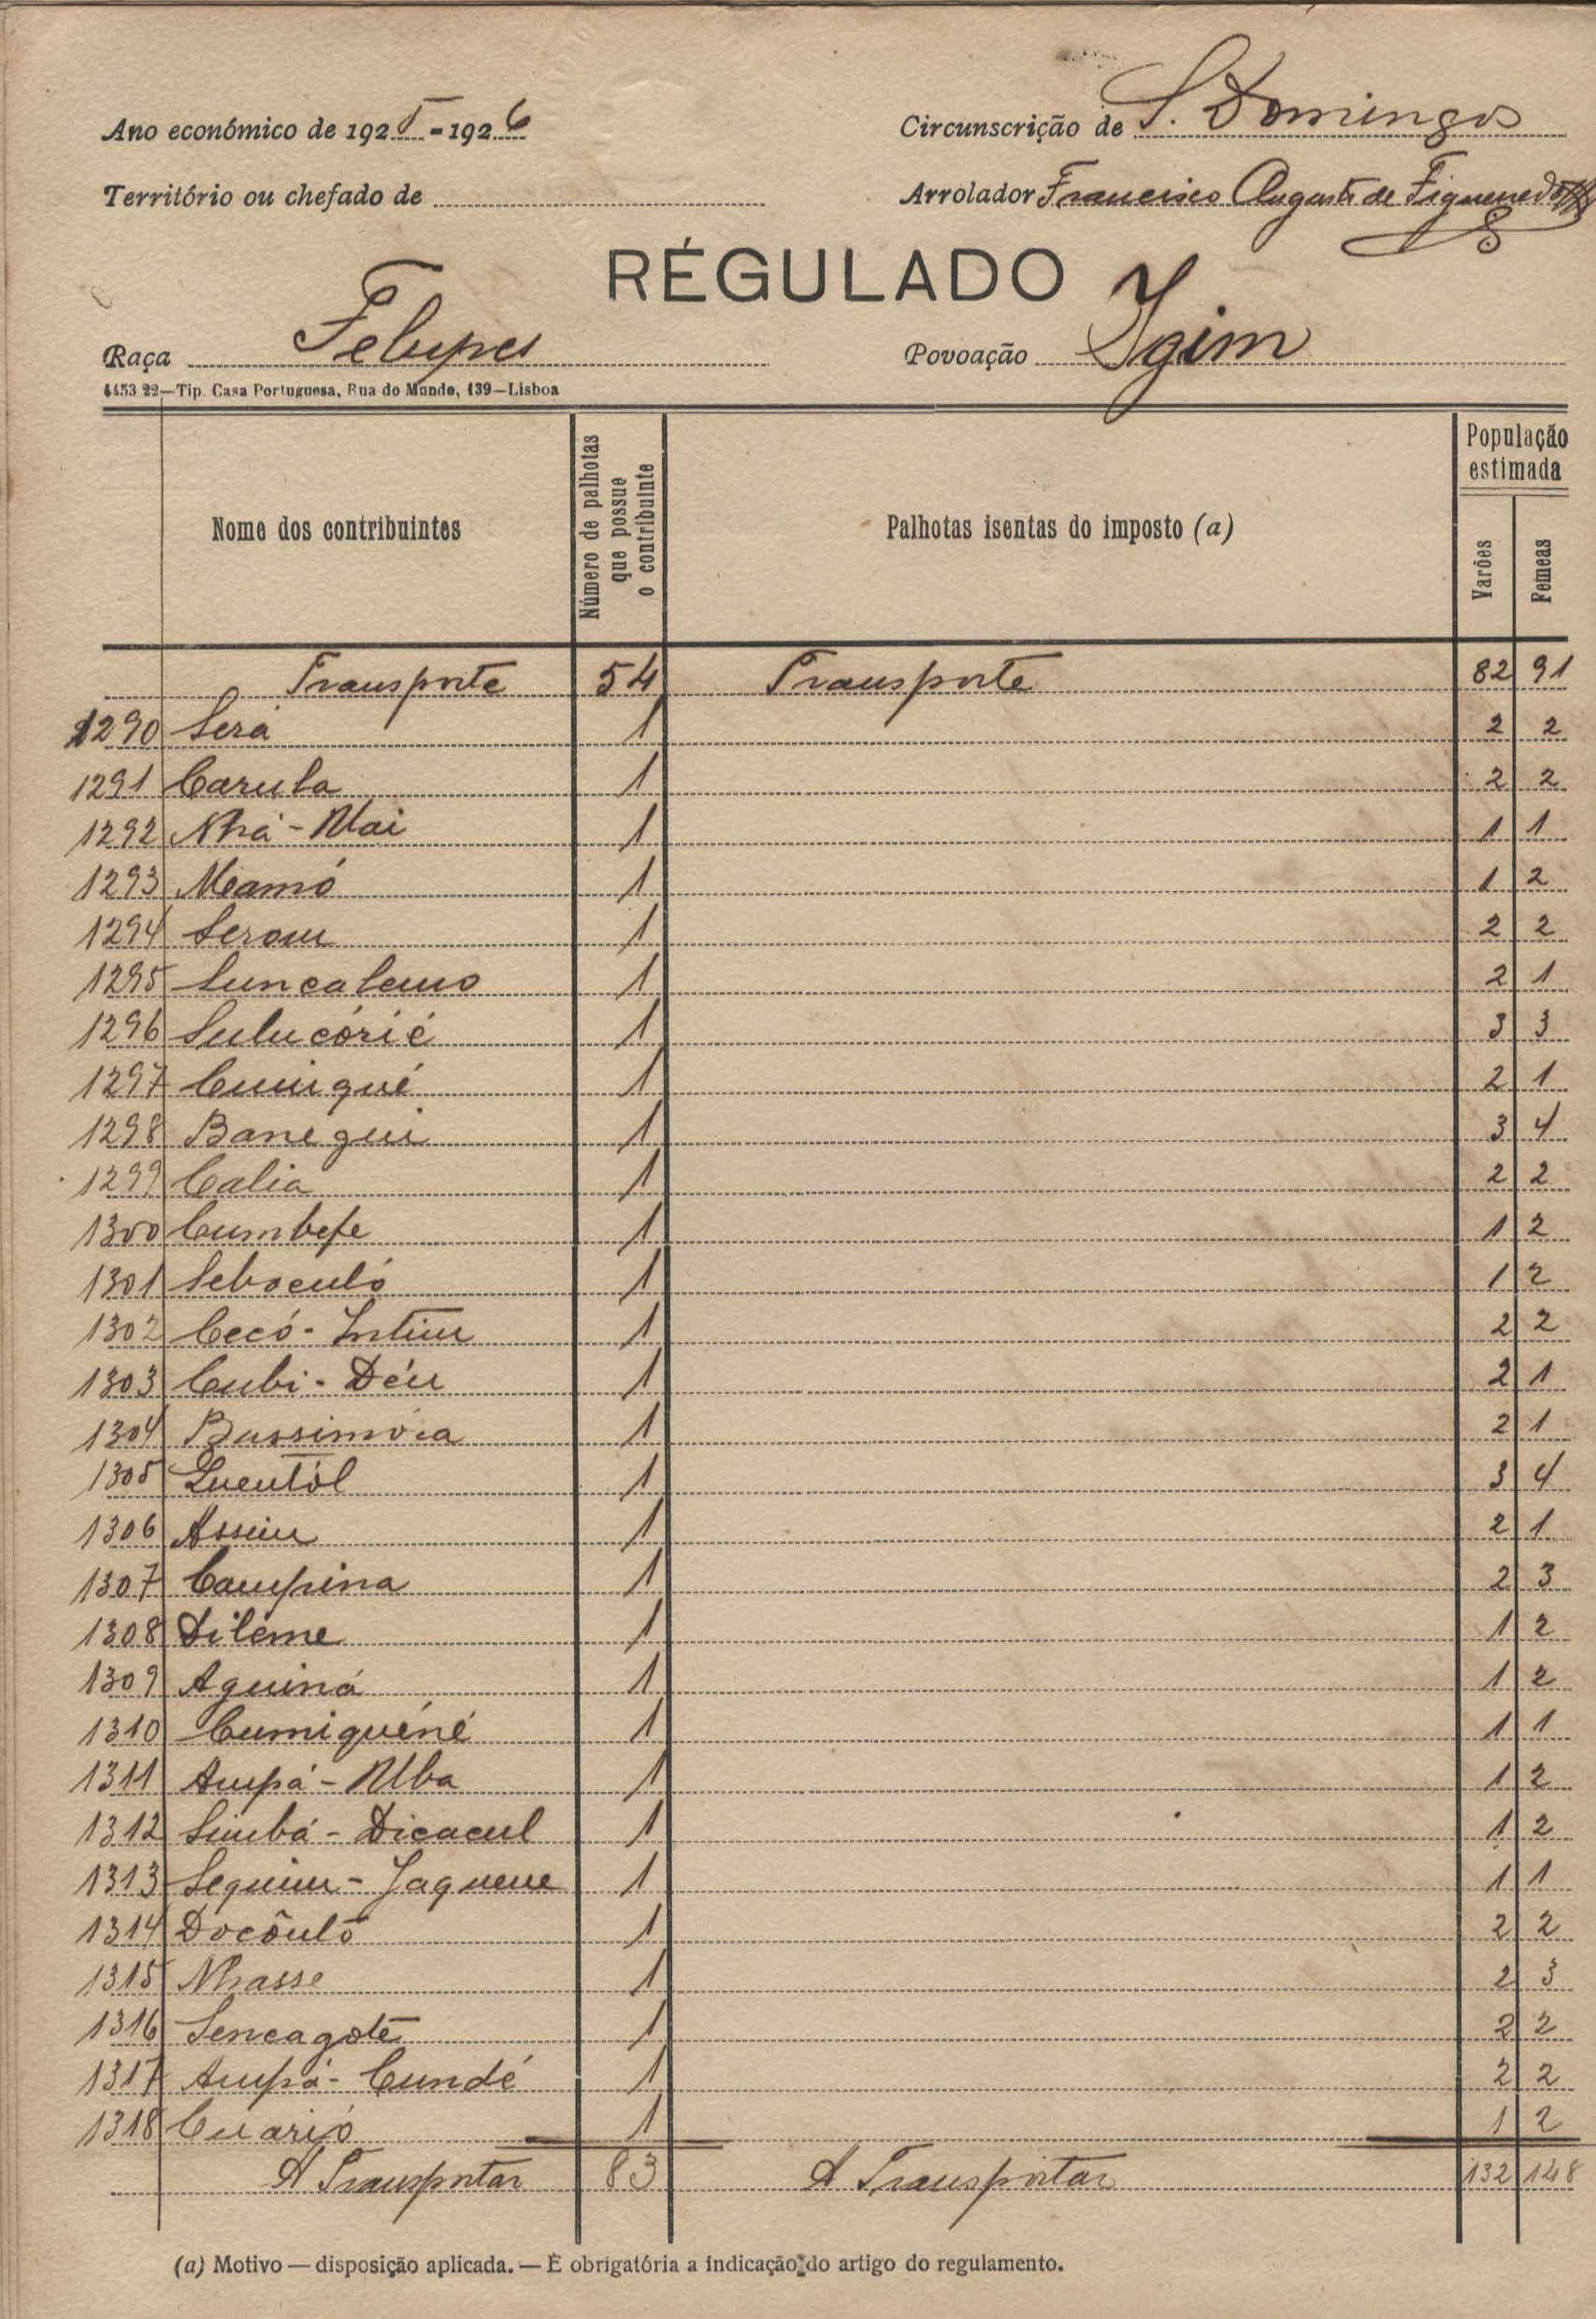 Ano económico de 1925-1926
Circunscrição de S. Domingos
Território ou chefado de
Arrolador Francisco Augusto de Figueiredo
RÉGULADO
Raça Felupes
Povoação Igim
4453 22—Tip. Casa Portuguesa, Rua do Mundo, 139—Lisboa
Nome dos contribuintes
Número de palhotas que possue o contribuinte
Palhotas isentas do imposto (a)
População estimada
Varões
Femeas
Transporte 54 Transporte 82 91
1290 Será 1 2 2
1291 Carula 1 2 2
1292 Nhá - Mai 1 1 1
1293 Mamó 1 1 2
1294 Serom 1 2 2
1295 1 2 1
1296 Sulucórié 1 3 3
1297 Cuinqué 1 2 1
1298 Banegui 1 3 4
1299 Calia 1 2 2
1300 Cumbefe 1 1 2
1301 Seboculó 1 1 2
1302 Cecó - Intim 1 2 2
1303 Cubi - Déu 1 2 1
1304 Bussimóca 1 2 1
1305 1 3 4
1306 Assim 1 2 1
1307 Campina 1 2 3
1308 Diléme 1 1 2
1309 Aguiná 1 1 2
1310 Cumiquéné 1 1 1
1311 Ampá - Uba 1 1 2
1312 Simbá - Dicacul 1 1 2
1313 Sequim - Jaquene 1 1 1
1314 Docôuló 1 2 2
1315 Nhasse 1 2 3
1316 Sencagote 1 2 2
1317 Ampá - Cundé 1 2 2
1318 Cuarió 1 1 2
A Transportar 83 A Transportar 132 148
(a) Motivo — disposição aplicada. — É obrigatória a indicação do artigo do regulamento.